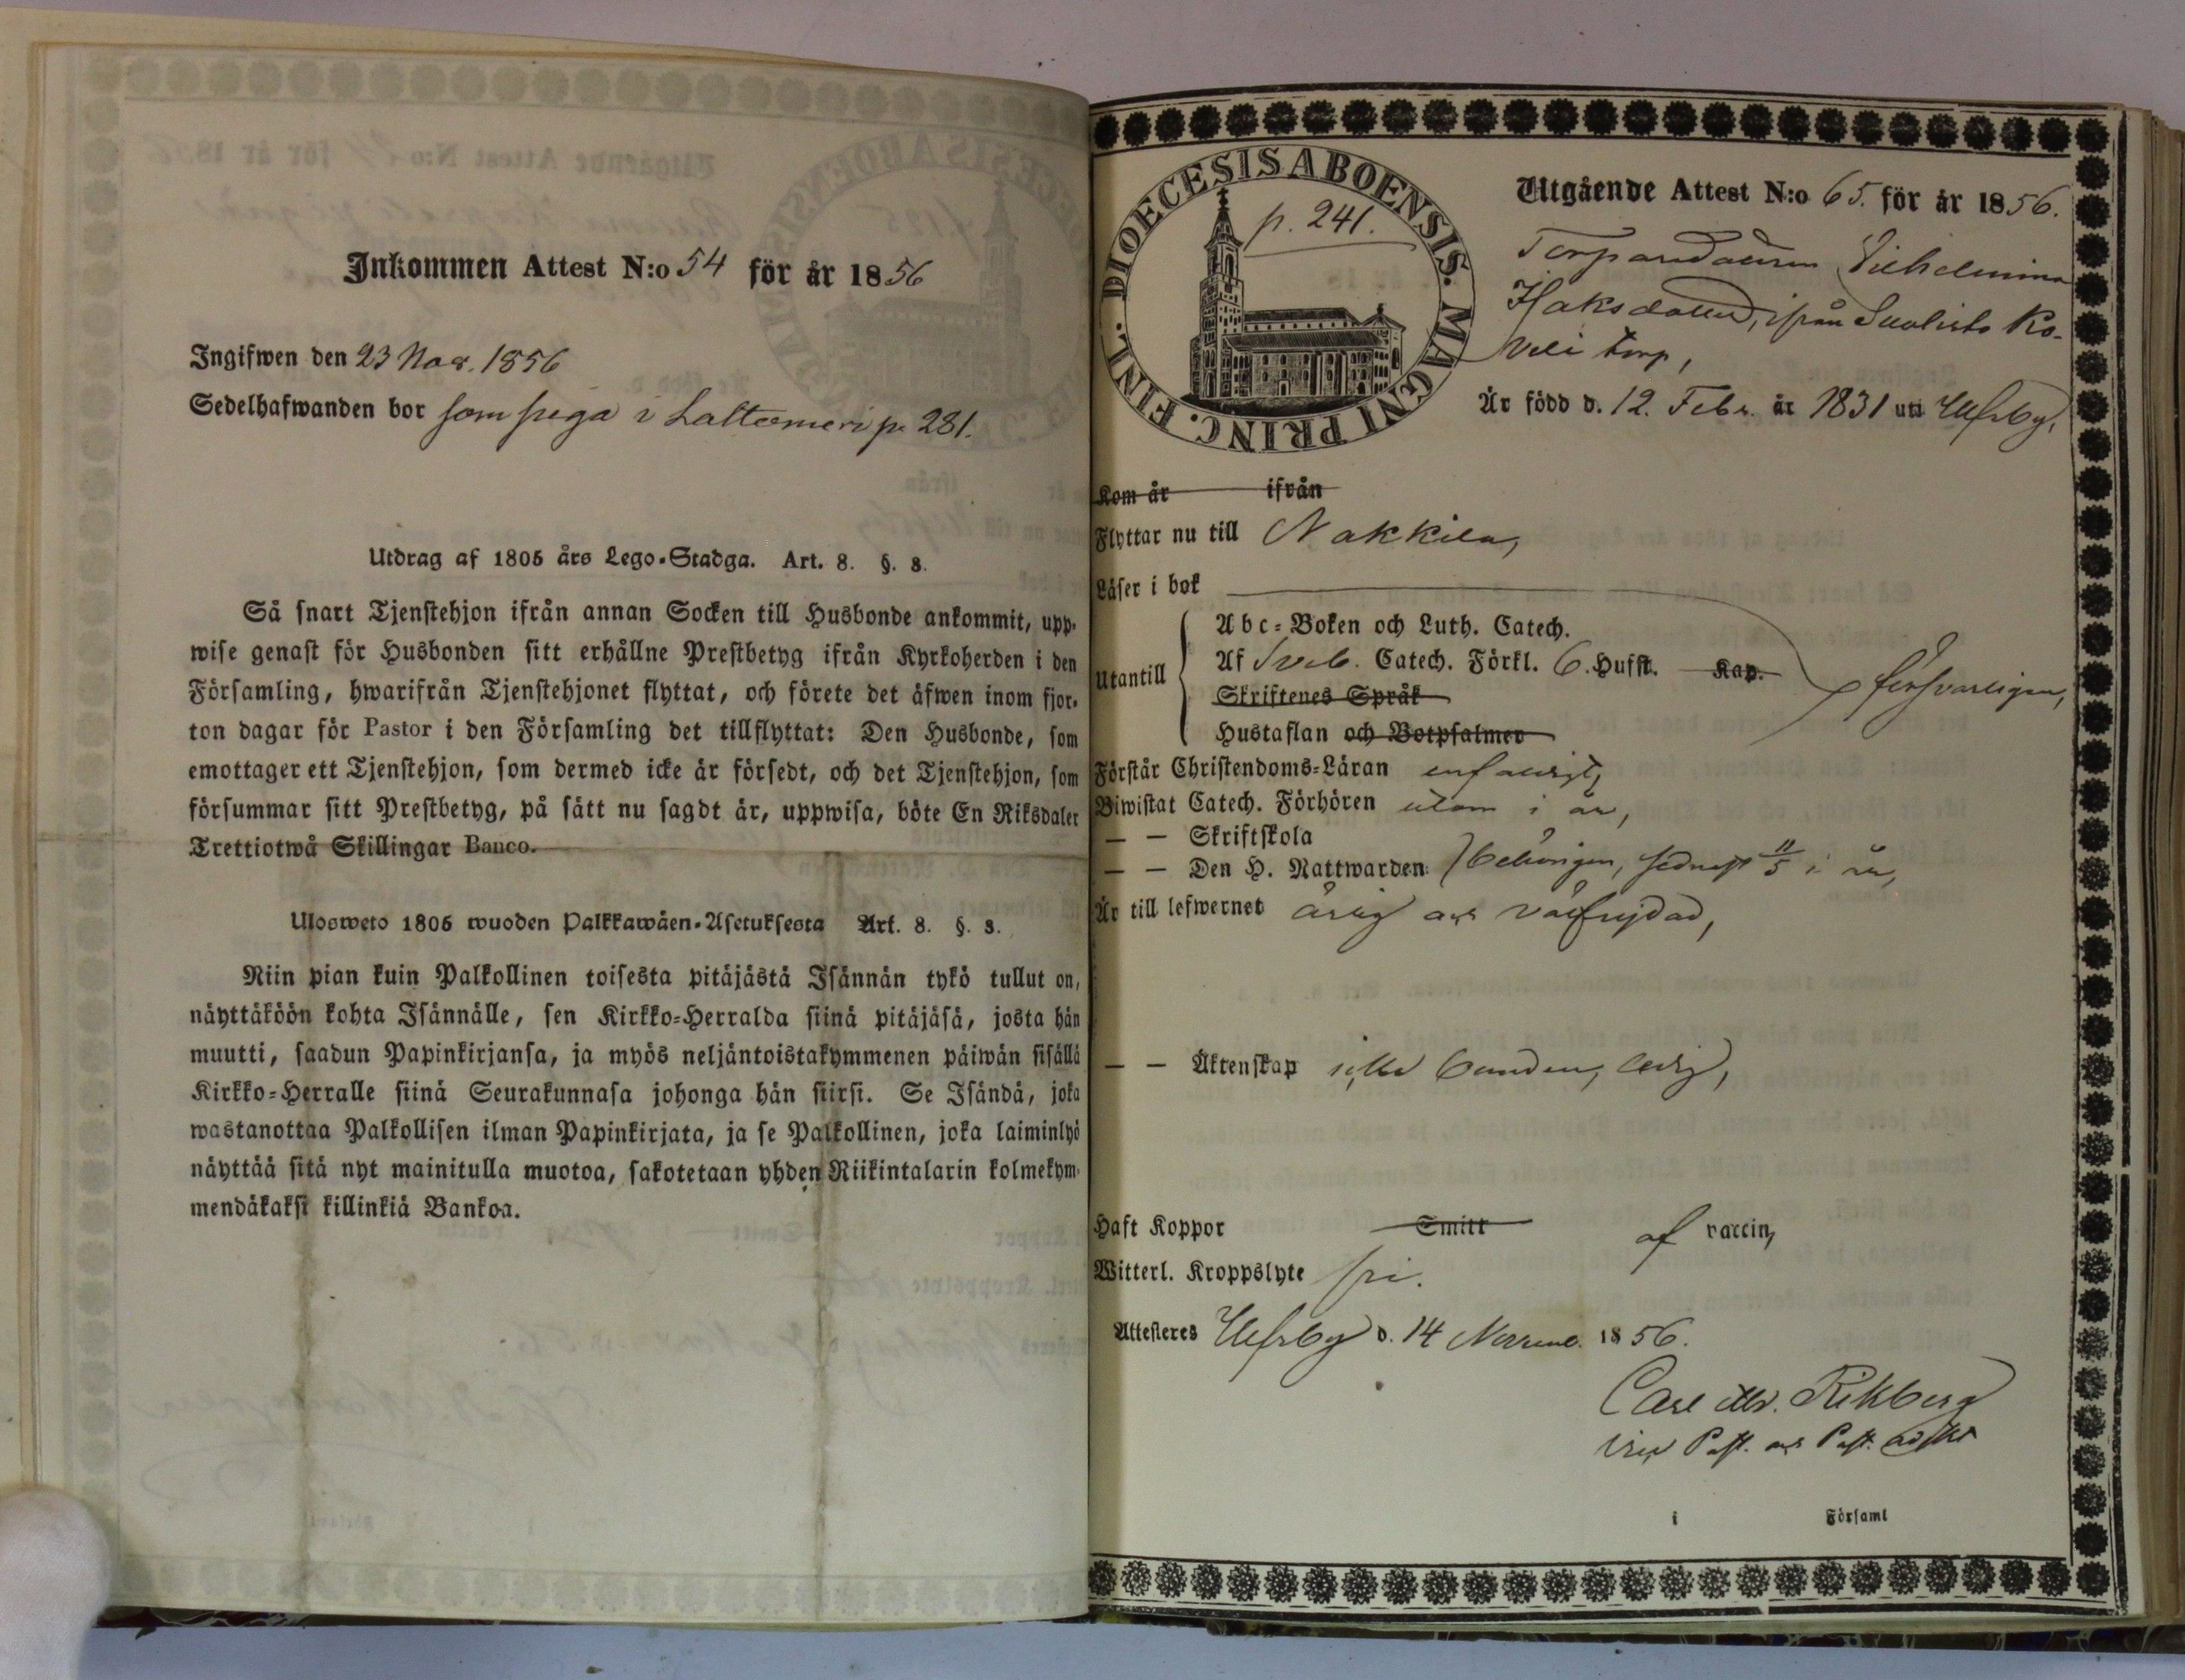 Inkommen Attest N:o 54 för år 1856
Ingifwen den 23 Nov. 1856
Sedelhafwanden bor som piga i Lattomeri p. 281.
Utdrag af 1805 års Lego-Stadga. Art. 8. §. 8.
Så snart Tjenstehjon ifrån annan Socken till Husbonde ankommit, upp-
wise genast för Husbonden sitt erhållne Prestbetyg ifrån Kyrkoherden i den
Församling, hwarifrån Tjenstehjonet flyttat, och förete det äfwen inom fjor-
ton dagar för Pastor i den Församling det tillflyttat: Den Husbonde, som
emottager ett Tjenstehjon, som dermed icke är försedt, och det Tjenstehjon, som
försummar sitt Prestbetyg, på sätt nu sagdt är, uppwisa, böte En Riksdaler
Trettiotwå Skillingar Banco.
Ulosweto 1805 wuoden Palkkawäen-Asetuksesta Art. 8. §. 8.
Niin pian kuin Palkollinen toisesta pitäjästä Isännän tykö tullut on,
näyttäköön kohta Isännälle, sen Kirkko-Herralda siinä pitäjäsä, josta hän
muutti, saadun Papinkirjansa, ja myös neljäntoistakymmenen päiwän sisällä
Kirkko-Herralle siinä Seurakunnasa johonga hän siirsi. Se Isändä, joka
wastanottaa Palkollisen ilman Papinkirjata, ja se Palkollinen, joka laiminlyö
näyttää sitä nyt mainitulla muotoa, sakotetaan yhden Riikintalarin kolmekym-
mendäkaksi killinkiä Bankoa.
DIOECESIS ABOENSIS. MAGNI PRINC. FINL.
p. 241.
Utgående Attest N:o 65. för år 1856.
Torparedottren Vilhelmina
Isaksdotter, ifrån Suolisto Ko-
veli torp,
Är född d. 12. Febr. år 1831 uti Ulfsby,
Kom år ifrån
Flyttar nu till Nakkila,
Läser i bok
Utantill
Abc-Boken och Luth. Catech.
Af Sveb. Catech. Förkl. 6. Hufst. Kap.
försvarligen,
Skriftenes Språk
Hustaflan och Botpsalmer
Förstår Christendoms-Läran enfaldigt,
Biwistat Catech. Förhören utom i år,
— — Skriftskola
— — Den H. Nattwarden behörigen, sednast 11/5 i år,
Är till lefwernet ärlig och välfrejdad,
— — Äktenskap icke bunden, ledig,
Haft Koppor Smitt af vaccin,
Witterl. Kroppslyte fri.
Attesteres Ulfsby d. 14 Novemb. 1856.
Carl Rekberg
Vice Past. och Past. adjkt
i Församl